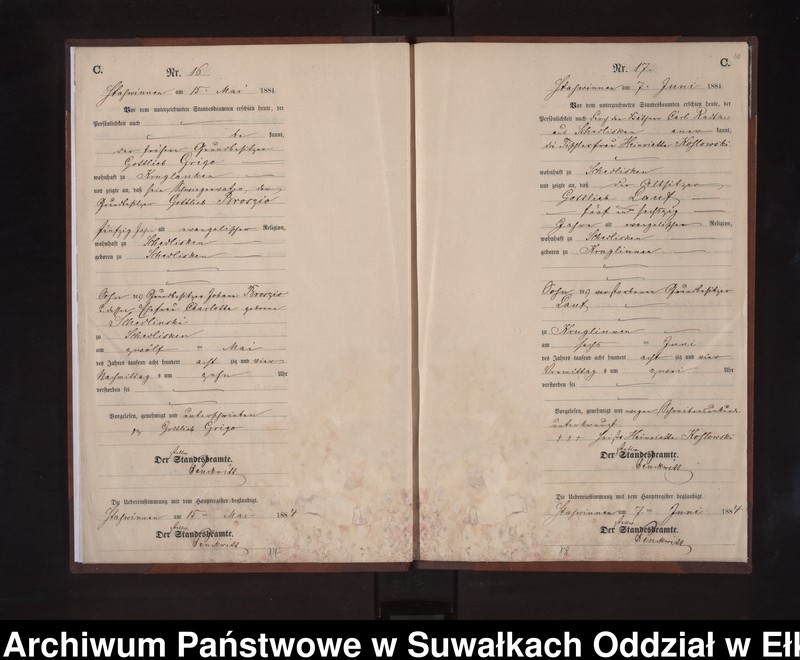 C.
Nr. 16
Staswinnen am 15. Mai 1884
Vor dem unterzeichneten Standesbeamten erschien heute, der
Persönlichkeit nach
be kannt,
der frühere Grundbesitzer
Gottlieb Grigo
wohnhaft zu Kruglanken
und zeigte an, daß sein Schwiegervater, der
Grundbesitzer Gottlieb Broszio
fünfzig Jahre alt evangelischer Religion,
wohnhaft zu Schedlisken
geboren zu Schedlisken
Sohn des Grundbesitzer Johann Broszio
Ehefrau Charlotte geborene
Schedlinski
zu Schedlisken
am zwölf ten Mai
des Jahres tausend acht hundert acht zig und vier
Nachmittag s um zehn Uhr
verstorben sei
Vorgelesen, genehmigt und unterschrieben
Gottlieb Grigo
Der Standesbeamte.
Die Uebereinstimmung mit dem Hauptregister beglaubigt.
Staswinnen am 15 ten Mai 1884
Der Standesbeamte.
C.
Nr. 17
Staswinnen am 7. Juni 1884
Vor dem unterzeichneten Standesbeamten erschien heute, der
Persönlichkeit nach durch den Besitzer Carl
aus Schedlisken aner kannt,
die Tischlerfrau Henriette Koslowski
wohnhaft zu Schedlisken
und zeigte an, daß der Altsitzer
Gottlieb Laut
fünf und sechszig
Jahre alt evangelischer Religion,
wohnhaft zu Schedlisken
geboren zu Kruglinnen
Sohn des verstorbenen Grundbesitzer
Laut
zu Kruglinnen
am sechs ten Juni
des Jahres tausend acht hundert acht zig und vier
Vormittag s um zwei Uhr
verstorben sei
Vorgelesen, genehmigt und wegen Schreibensunkunde
unterkreuzt
+++ Henriette Koslowski
Der Standesbeamte.
Die Uebereinstimmung mit dem Hauptregister beglaubigt.
Staswinnen am 7 ten Juni 1884
Der Standesbeamte.
Archiwum Państwowe w Suwałkach Oddział w Ełk